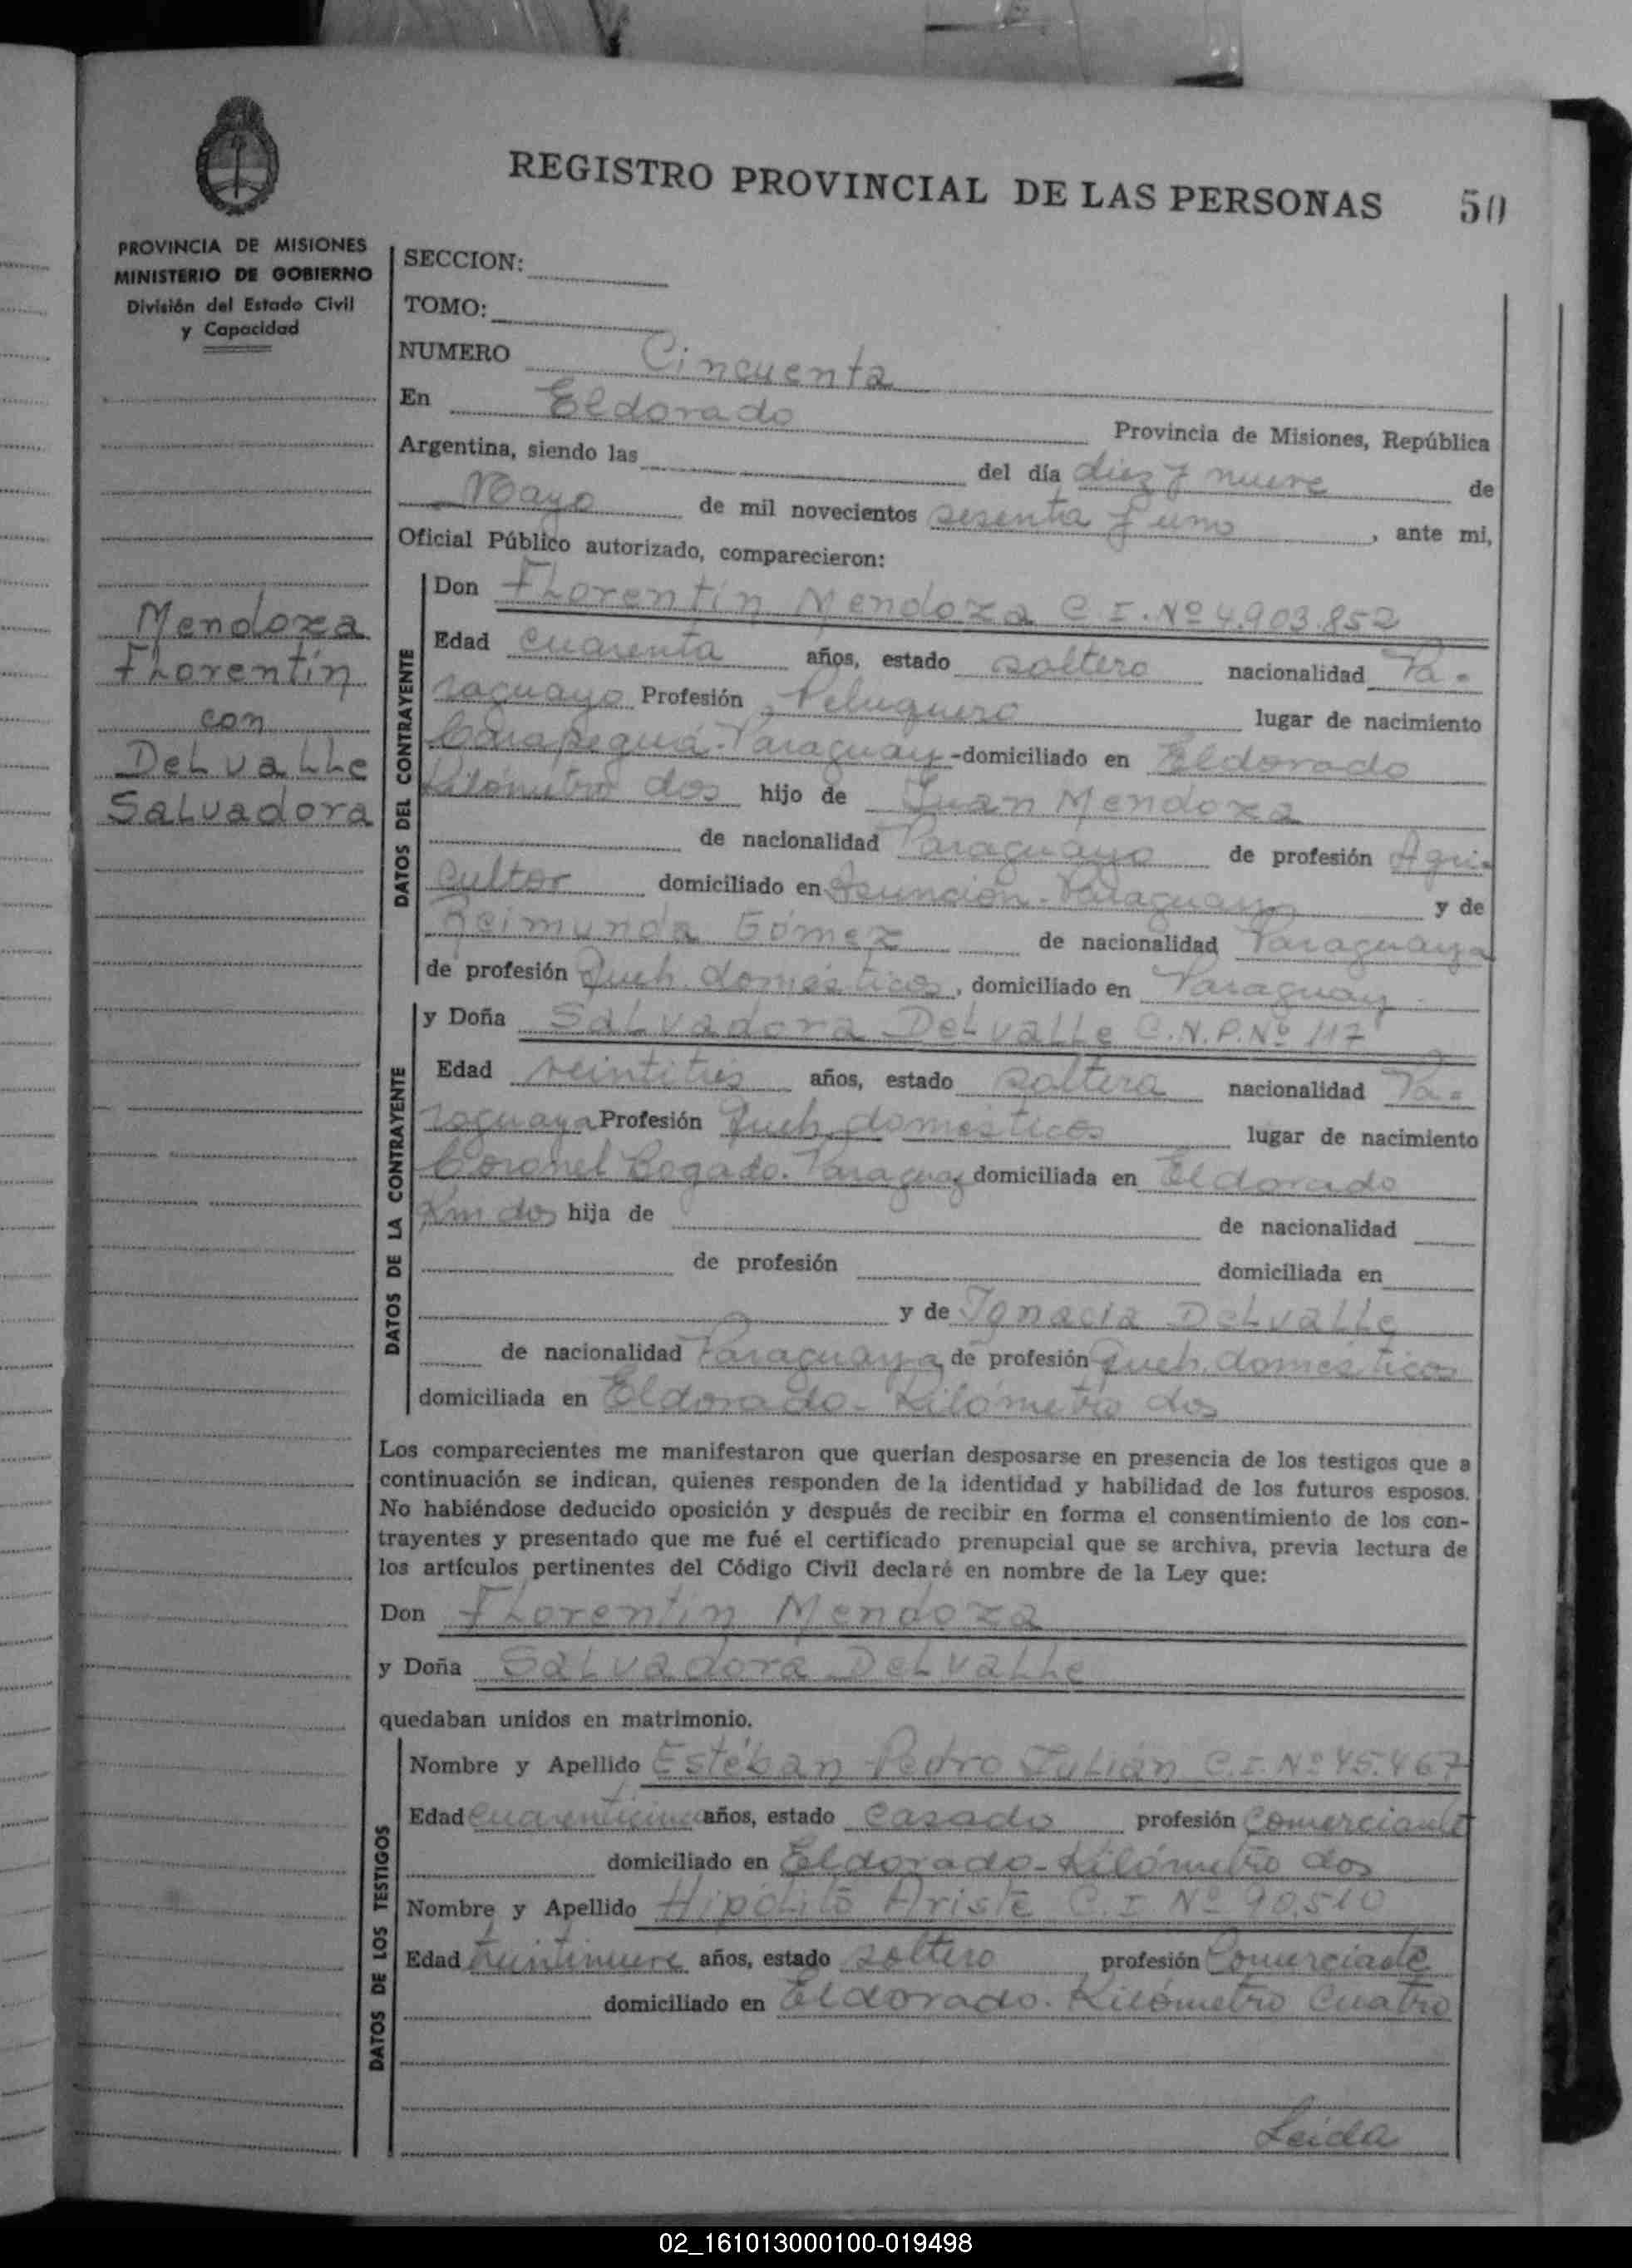 REGISTRO PROVINCIAL DE LAS PERSONAS 50
PROVINCIA DE MISIONES
MINISTERIO DE GOBIERNO
División del Estado Civil
y Capacidad
Mendoza
Florentín
con
Delvalle
Salvadora
SECCION:
TOMO:
NUMERO Cincuenta
En Eldorado Provincia de Misiones, República
Argentina, siendo las del día diez y nueve de
Mayo de mil novecientos sesenta y uno, ante mi,
Oficial Público autorizado, comparecieron:
DATOS DEL CONTRAYENTE
Don Florentín Mendoza C.I. Nº 4.903.852
Edad cuarenta años, estado soltero nacionalidad Pa-
raguayo Profesión Peluquero lugar de nacimiento
Carapeguá-Paraguay-domiciliado en Eldorado
Kilómetro dos hijo de Juan Mendoza
de nacionalidad Paraguayo de profesión Agri-
cultor domiciliado en Asunción-Paraguay y de
Reimunda Gómez de nacionalidad Paraguaya
de profesión Queh. domésticos, domiciliado en Paraguay-
DATOS DE LA CONTRAYENTE
y Doña Salvadora Delvalle C.N.P.Nº 117
Edad veintitrés años, estado soltera nacionalidad Pa-
raguaya Profesión Queh. domésticos lugar de nacimiento
Coronel Bogado. Paraguay domiciliada en Eldorado
Km dos hija de de nacionalidad
de profesión domiciliada en
y de Ignacia Delvalle
de nacionalidad Paraguaya de profesión Queh. domésticos
domiciliada en Eldorado- Kilómetro dos
Los comparecientes me manifestaron que querían desposarse en presencia de los testigos que a
continuación se indican, quienes responden de la identidad y habilidad de los futuros esposos.
No habiéndose deducido oposición y después de recibir en forma el consentimiento de los con-
trayentes y presentado que me fué el certificado prenupcial que se archiva, previa lectura de
los artículos pertinentes del Código Civil declaré en nombre de la Ley que:
Don Florentín Mendoza
y Doña Salvadora Delvalle
quedaban unidos en matrimonio.
DATOS DE LOS TESTIGOS
Nombre y Apellido Estéban Pedro Julián C.I. Nº 45.467
Edad cuarenticinco años, estado casado profesión Comerciante
domiciliado en Eldorado-Kilómetro dos
Nombre y Apellido Hipólito Ariste C.I. Nº 90.510
Edad treintinueve años, estado soltero profesión Comerciante
domiciliado en Eldorado. Kilómetro Cuatro
Leida
02_161013000100-019498